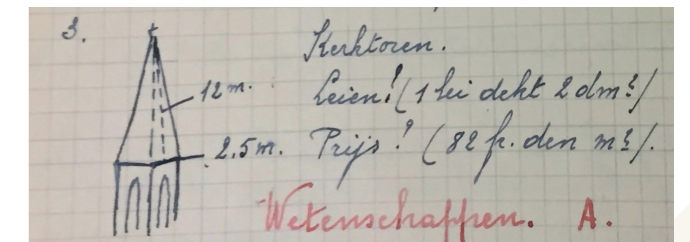 3.
Kerktoren.
12 m.
Leien? (1 lei dekt 2 dm²)
2,5 m. Prijs? (82 fr. den m²).
Wetenschappen. A.